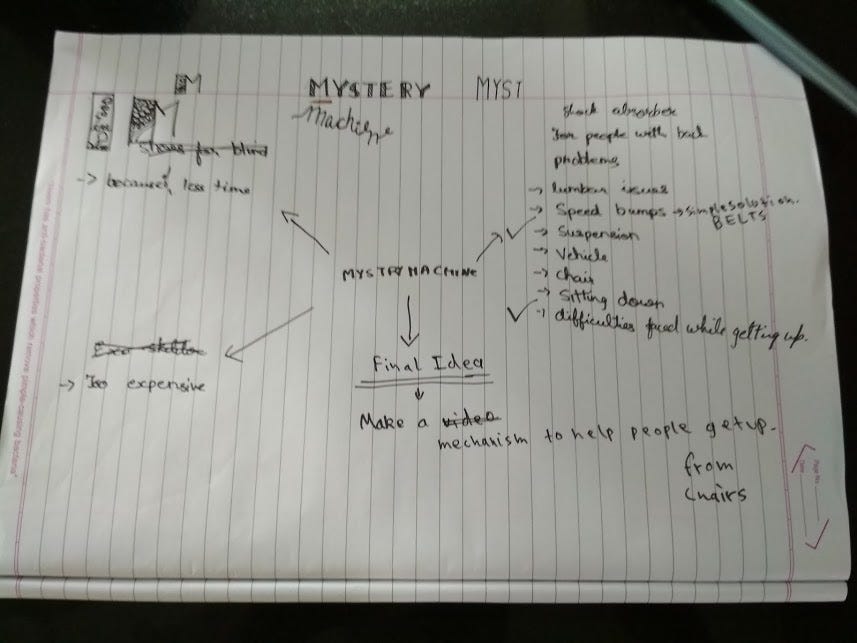 M
MYSTERY MYST
Machine
shoes for blind
-> because, less time
Shock absorber
for people with back
problems
-> lumbar issues
-> Speed bumps -> simple solution.
BELTS
-> Suspension
-> Vehicle
-> chair
-> Sitting down
-> difficulties faced while getting up.
MYSTRY MACHINE
Exo skeleton
-> Too expensive
Final Idea
Make a video
mechanism to help people get up.
from
chairs
Page No
Date